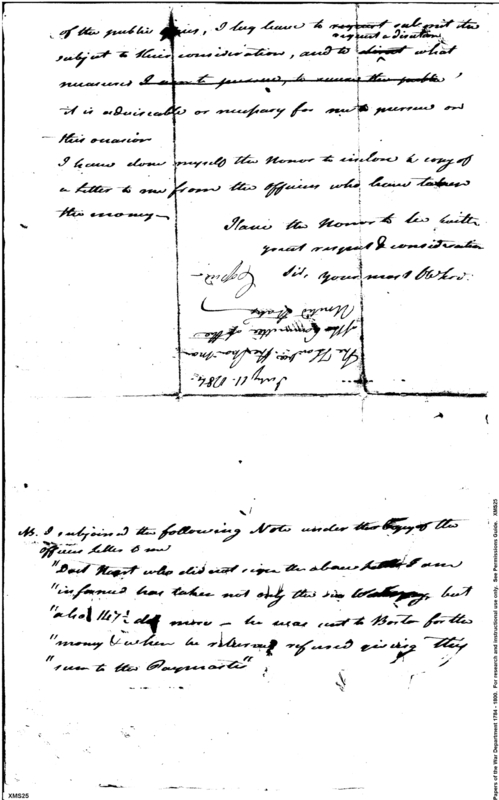 of the public , I beg leave to request submit the
request a direction
subject to their consideration, and to direct what
measures I am to pursue, to the public
it is adviseable or necessary for me to pursue on
this occasion
I have done myself the Honor to inclose a copy of
a letter to me from the officers who have taken
the money —
I have the Honor to be with
great respect & consideration
Sir, your most Obt
Copied
The Honble. the Chairman
of the Committee of the
United States
July 11. 1784.
NB. I subjoined the following Note under the Copy of the
officers letter to me
"Doct Hunt who did not sign the above letter I am
"informed has taken not only the six but
"also more — he was sent to Boston for the
"money & when he returned refused giving this
"sum to the Paymaster"
XMS25
Papers of the War Department 1784 - 1800. For research and instructional use only. See Permissions Guide. XMS25